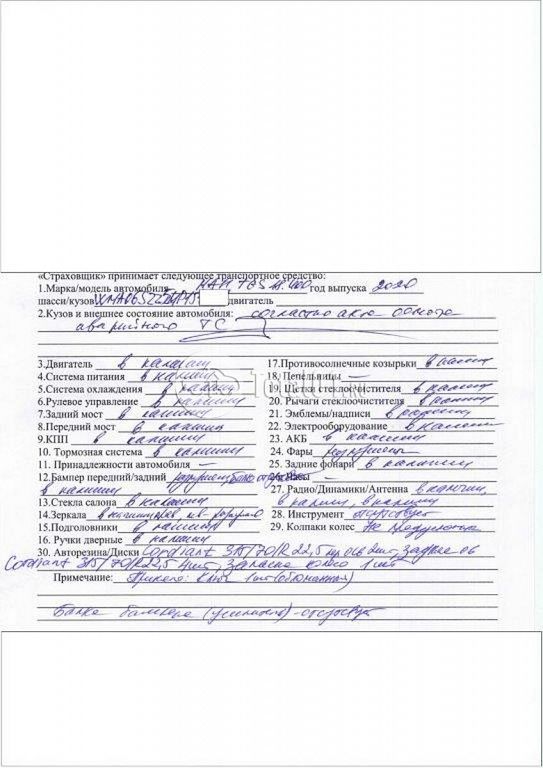 «Страховщик» принимает следующее транспортное средство:
1.Марка/модель автомобиля МАН TGS 18.400 год выпуска 2020
шасси/кузов двигатель
2.Кузов и внешнее состояние автомобиля: согласно акта осмотра
аварийного ТС
3.Двигатель в наличии 17.Противосолнечные козырьки в наличии
4.Система питания в наличии 18. Пепельницы —
5.Система охлаждения в наличии 19. Щетки стеклоочистителя в наличии
6.Рулевое управление в наличии 20. Рычаги стеклоочистителя в наличии
7.Задний мост в наличии 21. Эмблемы/надписи в наличии
8.Передний мост в наличии 22. Электрооборудование в наличии
9.КПП в наличии 23. АКБ в наличии
10. Тормозная система в наличии 24. Фары
11. Принадлежности автомобиля — 25. Задние фонари в наличии
12.Бампер передний/задний 26.
в наличии 27. Радио/Динамики/Антенна в наличии,
13.Стекла салона в наличии в наличии, в наличии
14.Зеркала в наличии 28. Инструмент отсутствует
15.Подголовники в наличии 29. Колпаки колес не предусмотр
16. Ручки дверные в наличии
30. Авторезина/Диски Cordiant 315/70/R22,5 2шт, задняя ось
Cordiant 315/70/R22,5 4шт, колесо 1 шт
Примечание: ключ 1шт
Балка бампера (усилитель) - отсутствует